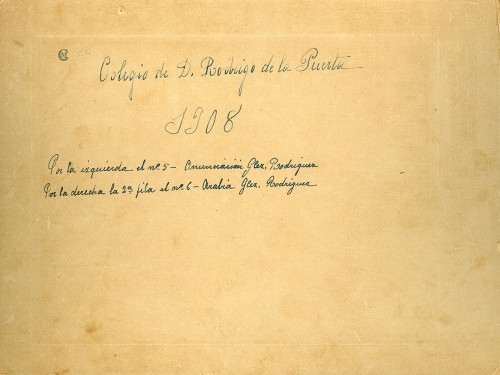 Colegio de D. Rodrigo de la Puerta
1908
Por la izquierda el nº 5 - Enunciación Glez. Rodríguez
Por la derecha la 2ª fila el nº 6 - Arabia Glez. Rodríguez